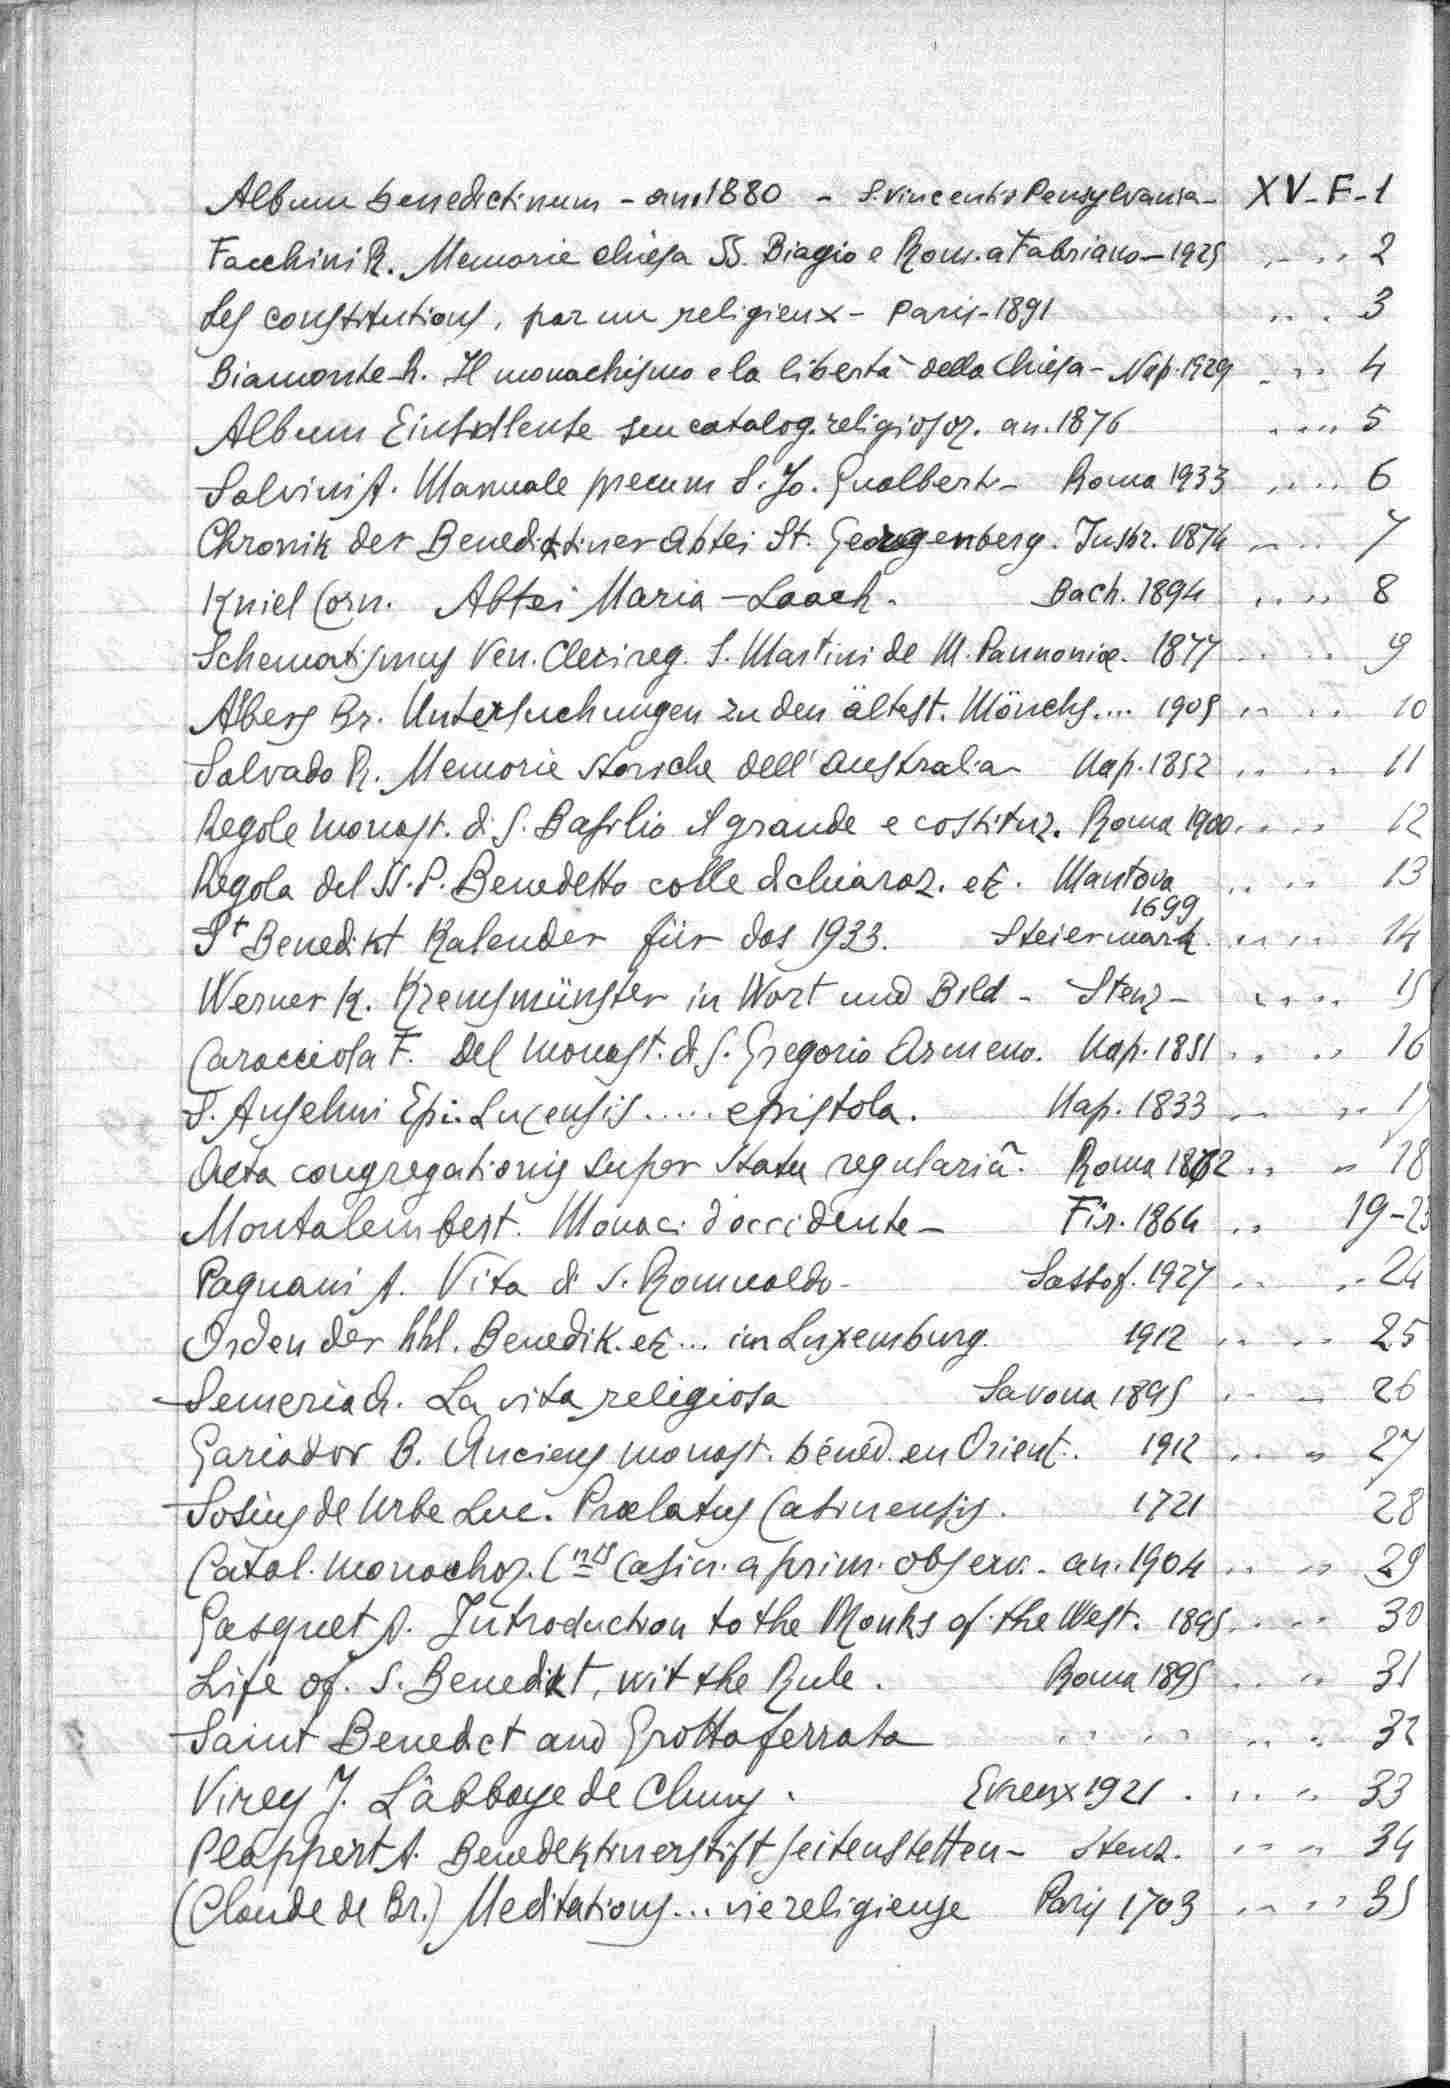 Album benedictinum - an. 1880 - S. Vincentio Pensylvania - XV-F-1
Facchini R. Memorie chiesa SS. Biagio e Rom. a Fabriano - 1925 " " 2
Les constitutions, par un religieux - Paris - 1891 " " 3
Biamonte R. Il monachismo e la libertà della Chiesa - Nap. 1929 " " 4
Album Einsidlense seu catalog. religiosor. an. 1876 " " 5
Salvini A. Manuale precum S. Jo. Gualberti - Roma 1933 " " 6
Chronik der Benediktiner abtei St. Georgenberg. Insbr. 1874 " " 7
Kniel Corn. Abtei Maria - Laach. Bach. 1894 " " 8
Schematismus Ven. Cleri reg. S. Martini de M. Pannoniæ. 1877 " " 9
Albers Br. Untersuchungen zu den ältest. Mönchs.... 1905 " " 10
Salvado R. Memorie storiche dell'Australia Nap. 1852 " " 11
Regole monast. di S. Basilio il grande e costituz. Roma 1900 " " 12
Regola del SS. P. Benedetto colle dichiaraz. etc. Mantova 1699 " " 13
St Benedikt Kalender für das 1933. Steiermark " " 14
Werner K. Kremsmünster in Wort und Bild - Stenz - " " 15
Caracciola F. Del monast. di S. Gregorio Armeno. Nap. 1851 " " 16
S. Anselmi Epi. Lucensis ..... epistola. Nap. 1833 " " 17
Acta congregationis super statu regulariũ. Roma 1862 " " 18
Montalembert. Monaci d'occidente - Fir. 1864 " 19-23
Pagnani A. Vita di S. Romualdo - Sassof. 1927 " " 24
Orden der hhl. Benedik. etc... im Luxemburg. 1912 " " 25
Semeria G. La vita religiosa Savona 1895 " " 26
Gariador B. Anciens monast. bénéd. en Orient. 1912 " " 27
Sosius de Urbe Luc. Prælatus Casinensis. 1721 28
Catal. monachor. Cnis Casin. a prim. observ. - an. 1904 " " 29
Gasquet A. Introduction to the Monks of the West. 1895 " " 30
Life of S. Benedikt, wit the Rule. Roma 1895 " " 31
Saint Benedct and Grottaferrata " " " " 32
Virey J. L'abbaye de Cluny. Evreux 1921 . " " 33
Plappert A. Benedektinerstift Seitenstetten - Stenz. " " 34
(Claude de Br.) Meditations... vie religieuse Paris 1703 " " 35